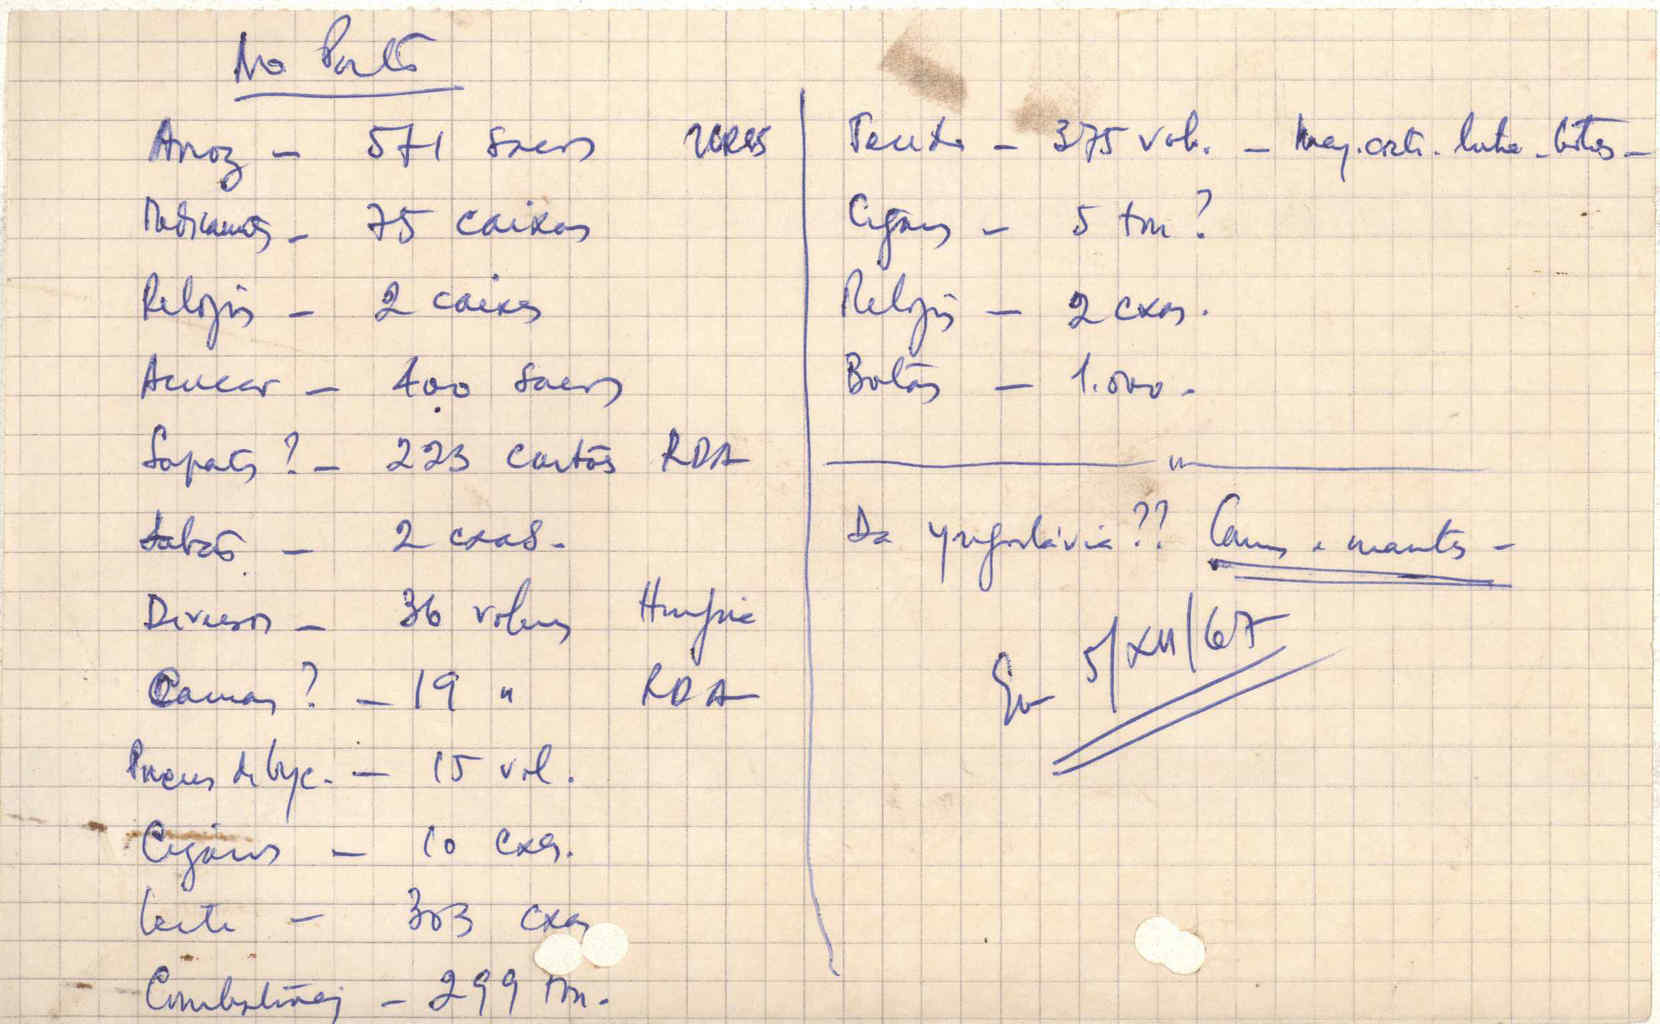 No Porto
Arroz – 571 sacos URSS
Medicamentos – 75 caixas
Relógios – 2 caixas
Acucar – 400 sacos
Sapatos ? – 223 cartões RDA
Sabão – 2 cxas.
Diversos – 36 volumes Hungria
Camas ? – 19 " RDA
Pneus de byc. – 15 vol.
Cigarros – 10 cxas.
Leite – 303 cxas
Combustíveis – 299 ton.
Tecido – 375 vol. –
Cigarros – 5 ton ?
Relógios – 2 cxas.
Botas – 1.000 –
Da yugoslávia ?? Camas e mantas –
Em 5/XII/67